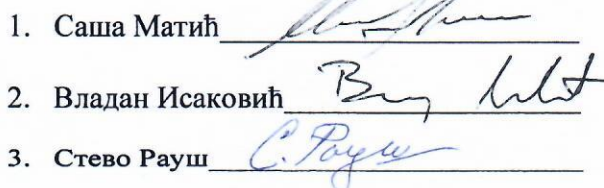 1. Саша Матић
2. Владан Исаковић
3. Стево Рауш С. Рауш